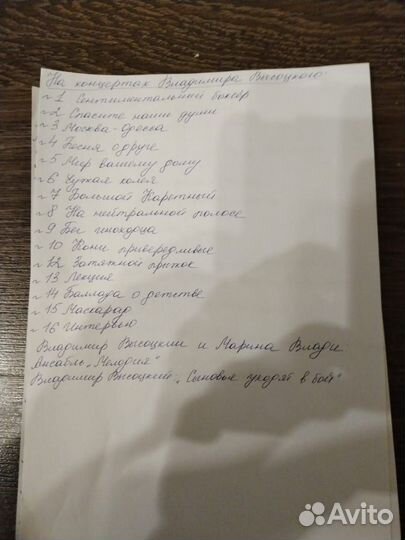 "На концертах Владимира Высоцкого"
~ 1 Сентиментальный боксёр
~ 2 Спасите наши души
~ 3 Москва-Одесса
~ 4 Песня о друге
~ 5 Мир вашему дому
~ 6 Чужая колея
~ 7 Большой Каретный
~ 8 На нейтральной полосе
~ 9 Бег иноходца
~ 10 Кони привередливые
~ 12 Затяжной прыжок
~ 13 Лекция
~ 14 Баллада о детстве
~ 15 Маскарад
~ 16 Интервью
Владимир Высоцкий и Марина Влади
Ансабль „Мелодия"
Владимир Высоцкий „Сыновья уходят в бой"
Avito